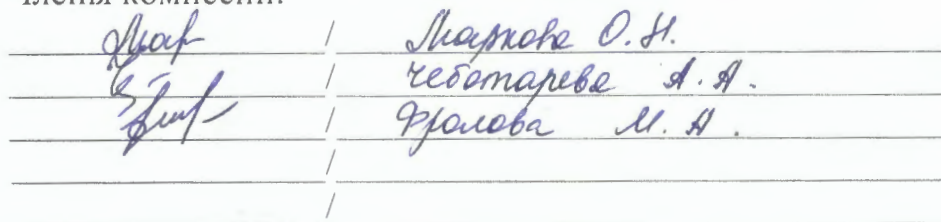 Члены комиссии:
/ Маркова О. Н.
/ Чеботарева А. А.
/ Фролова М. А.
/
/